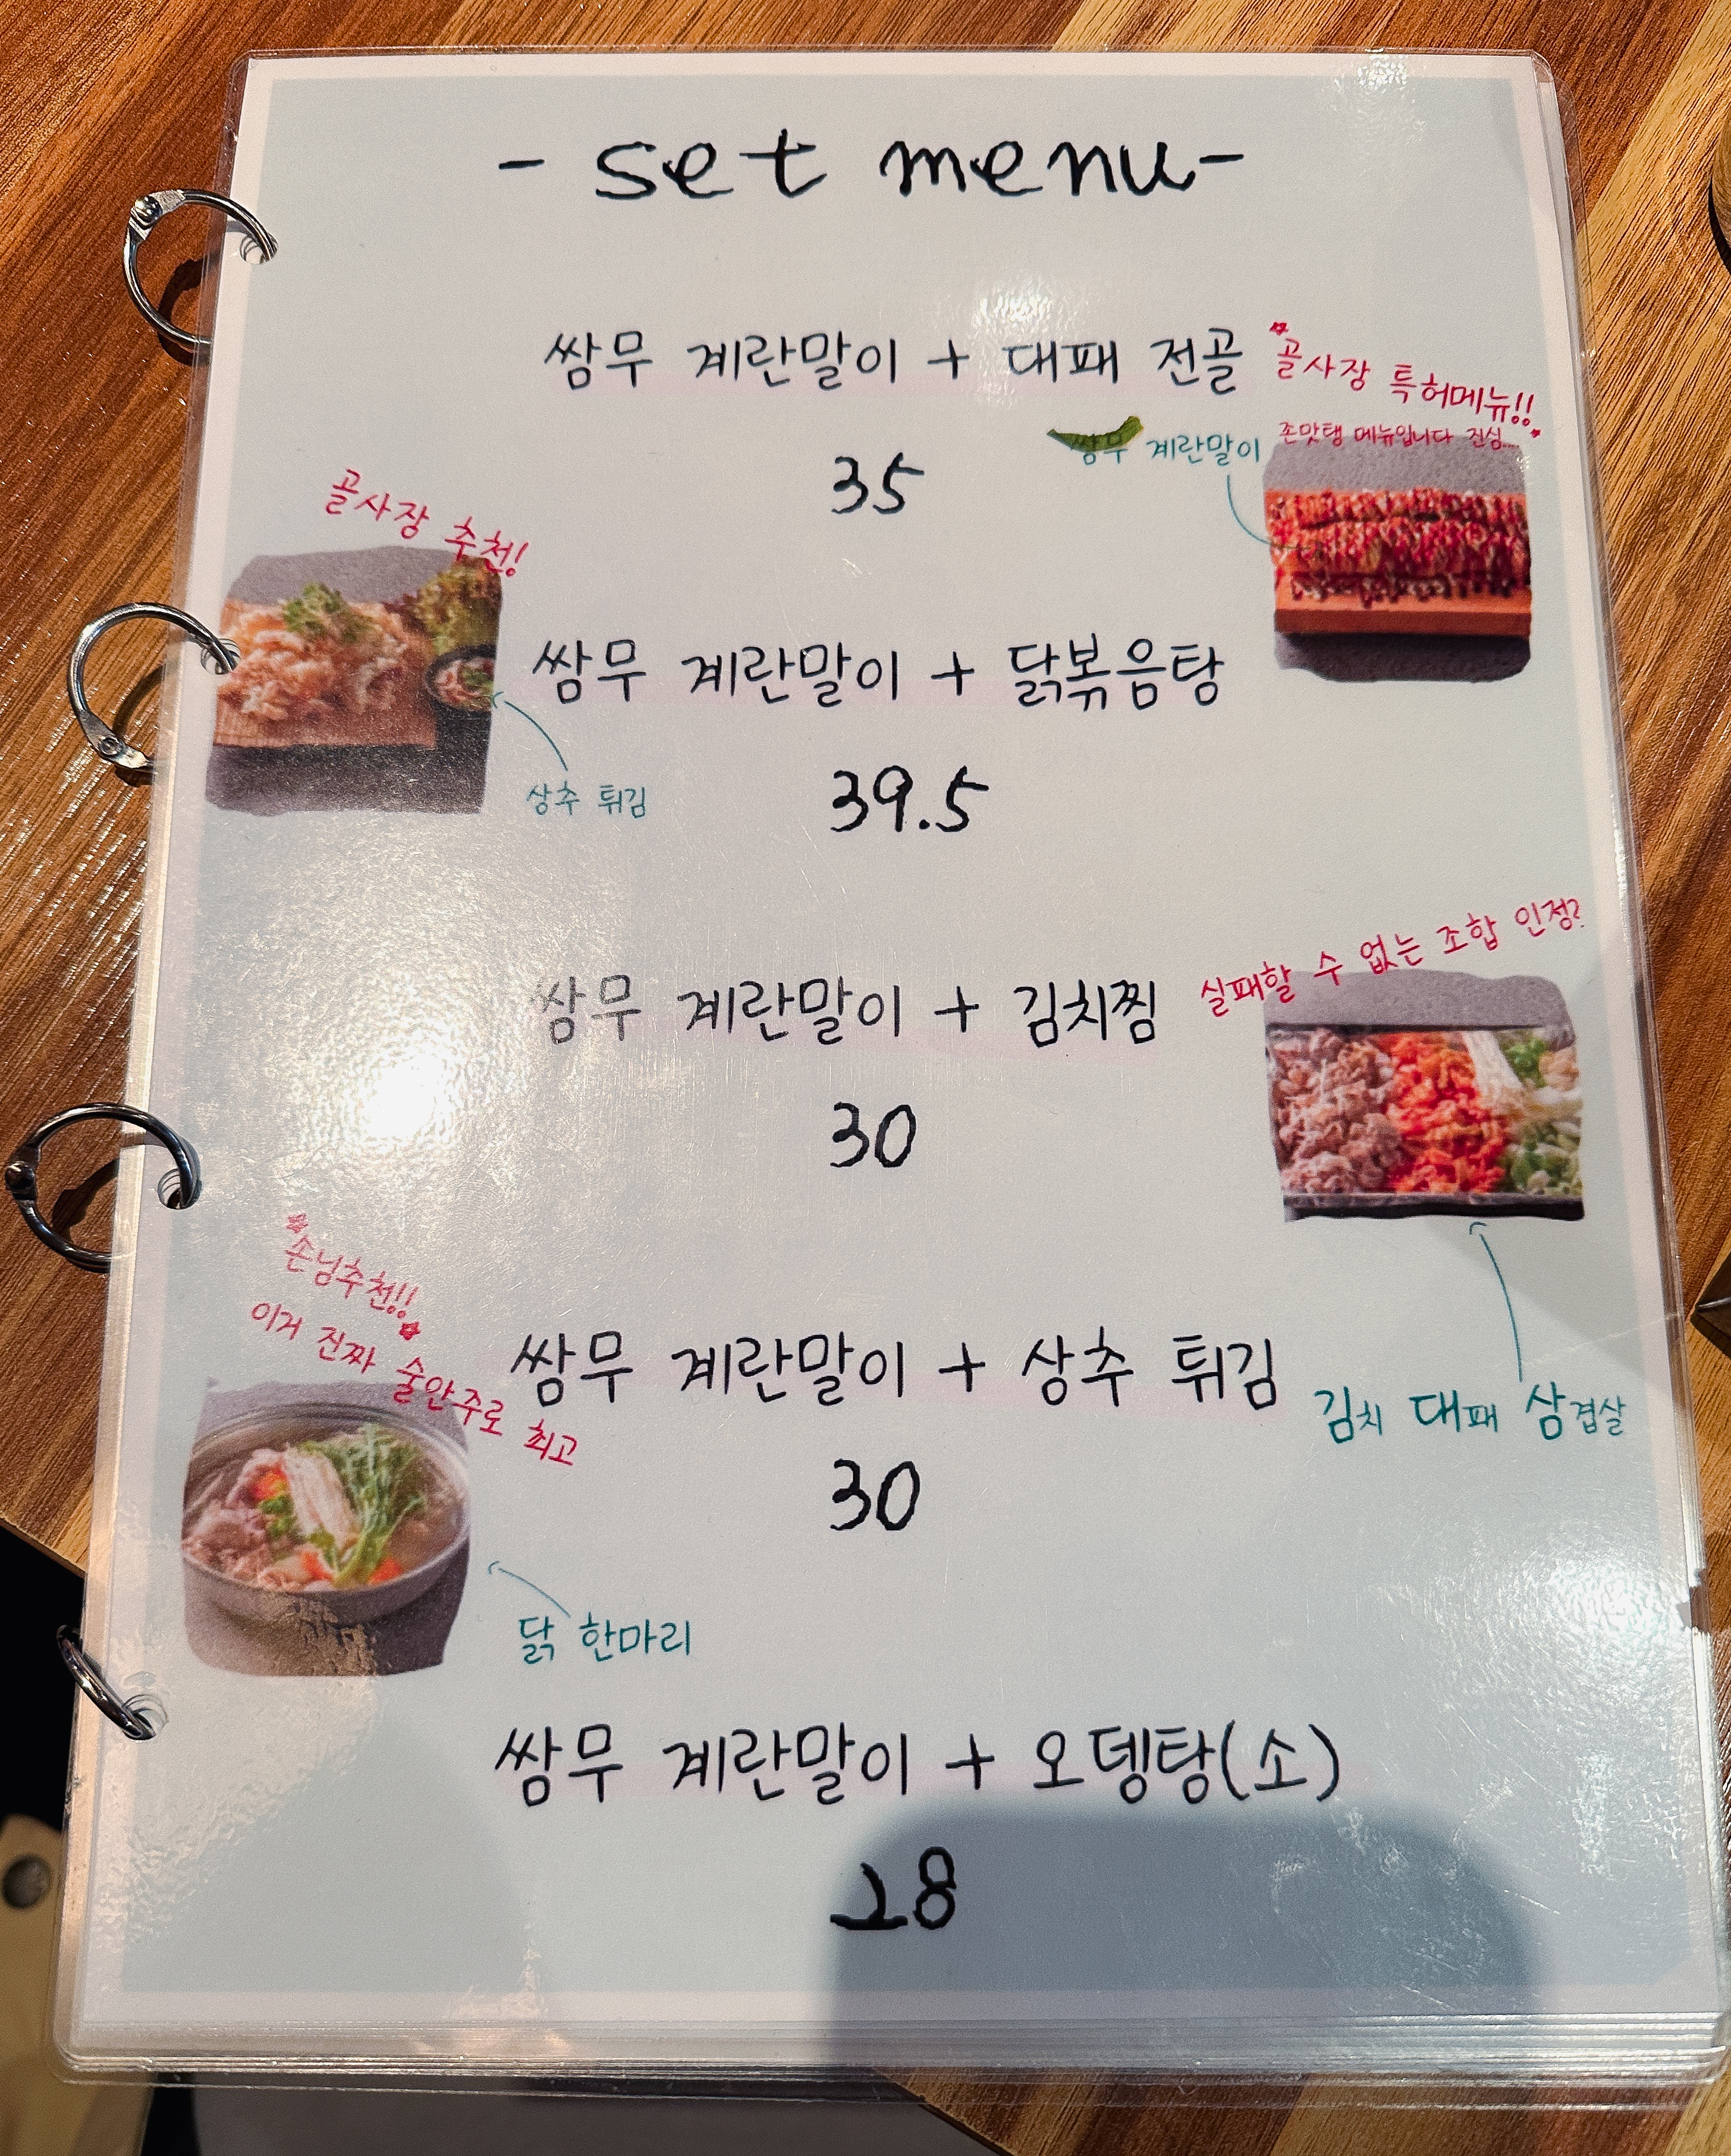 - set menu -
쌈무 계란말이 + 대패 전골
*골사장 특허메뉴!!*
존맛탱 메뉴입니다 진심...
쌈무 계란말이
35
골사장 추천!
쌈무 계란말이 + 닭볶음탕
상추 튀김
39.5
실패할 수 없는 조합 인정?
쌈무 계란말이 + 김치찜
30
*손님추천!!*
이거 진짜 술안주로 최고
쌈무 계란말이 + 상추 튀김
김치 대패 삼겹살
30
닭 한마리
쌈무 계란말이 + 오뎅탕(소)
28